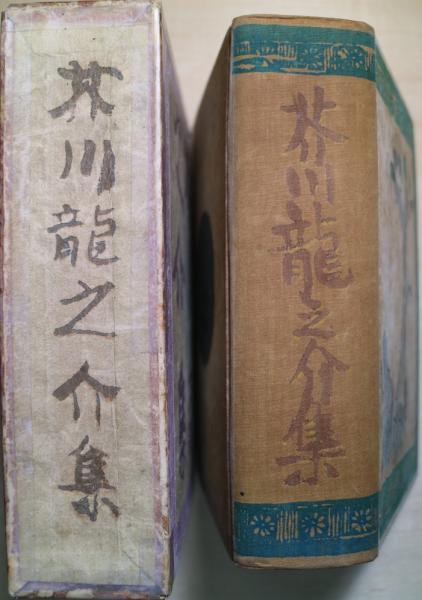 芥川龍之介集
芥川龍之介集